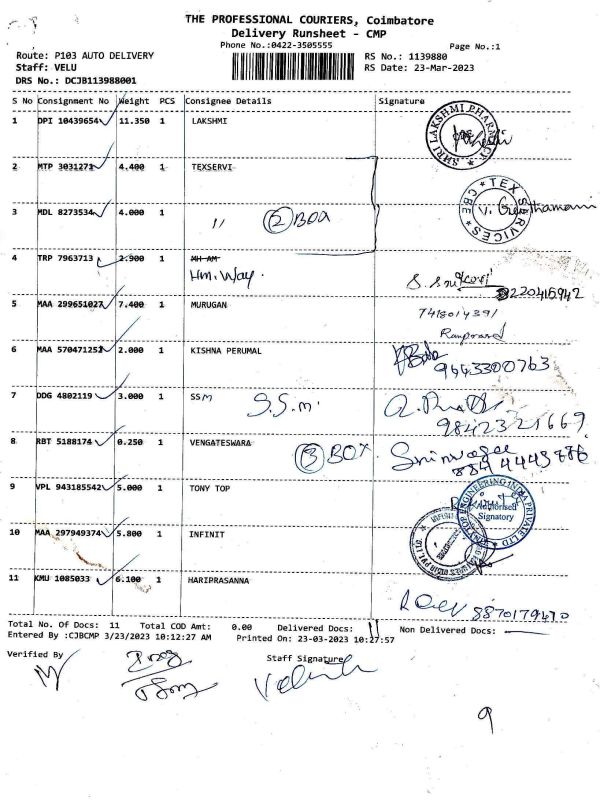 THE PROFESSIONAL COURIERS, Coimbatore
Delivery Runsheet - CMP
Phone No.:0422-3505555
Page No.:1
Route: P103 AUTO DELIVERY
RS No.: 1139880
Staff: VELU
RS Date: 23-Mar-2023
DRS No.: DCJB113988001
S No Consignment No Weight PCS Consignee Details Signature
1 DPI 10439654 11.350 1 LAKSHMI
SHRI LAKSHMI PHARMACY
2 MTP 3031271 4.400 1 TEXSERVI
TEX SERVICES CBE
3 MDL 8273534 4.000 1 " 2 BOX
4 TRP 7963713 2.900 1 MH AM
Hm. Way.
8220415942
5 MAA 299651027 7.400 1 MURUGAN
7418014391
6 MAA 570471252 2.000 1 KISHNA PERUMAL
9443300763
7 DDG 4802119 3.000 1 SSM S.S.m.
9842321669
8 RBT 5188174 0.250 1 VENGATESWARA 3 BOX
9 VPL 943185542 5.000 1 TONY TOP
ENGINEERING INDIA PRIVATE LTD
Authorised
Signatory
10 MAA 297949374 5.800 1 INFINIT
11 KMU 1085033 6.100 1 HARIPRASANNA
8870179410
Total No. Of Docs: 11 Total COD Amt: 0.00 Delivered Docs: 11 Non Delivered Docs:
Entered By :CJBCMP 3/23/2023 10:12:27 AM Printed On: 23-03-2023 10:27:57
Verified By Staff Signature
9